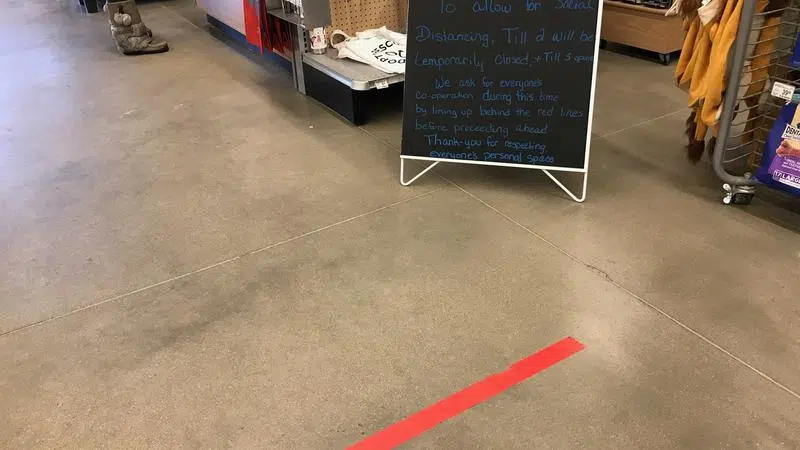 To allow for Social
Distancing, Till 2 will be
temporarily closed, + Till 3 open
We ask for everyone's
co-operation during this time
by lining up behind the red lines
before proceeding ahead
Thank-you for respecting
everyone's personal space
DENTA
LARGE